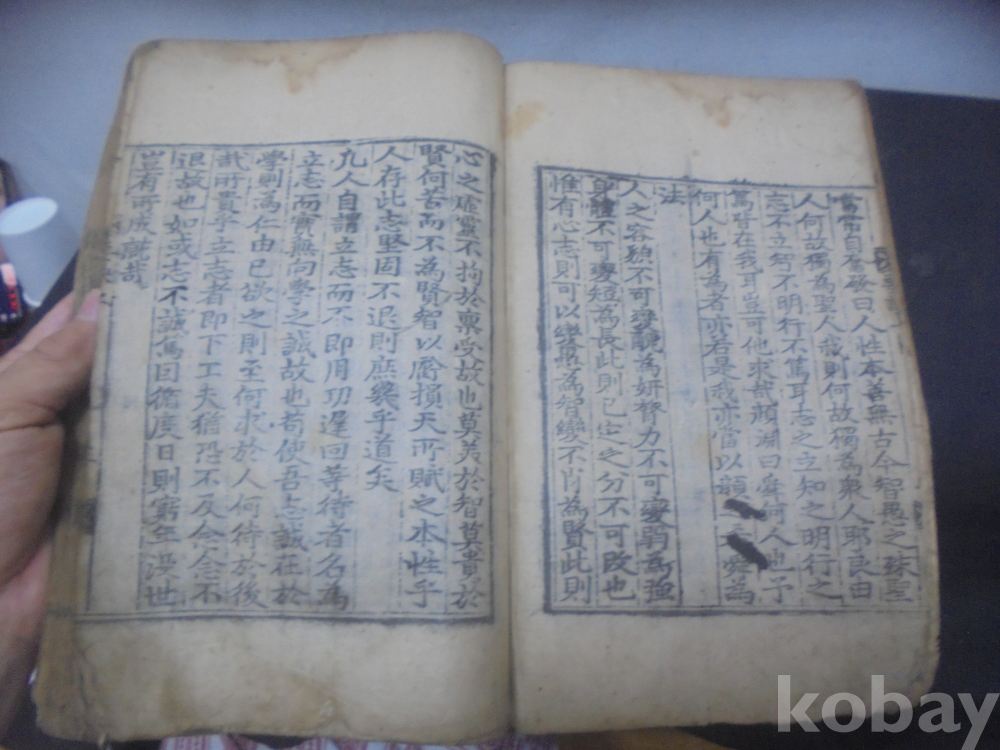 當常自奮發曰人性本善無古今智愚之殊聖
人何故獨為聖人我則何故獨為衆人耶良由
志不立知不明行不篤耳志之立知之明行之
篤皆在我耳豈可他求哉顔淵曰舜何人也予
何人也有為者亦若是我亦當以顔舜為
法
人之容貌不可變醜為姸膂力不可變弱為強
身體不可變短為長此則已定之分不可改也
惟有心志則可以變愚為智變不肖為賢此則
心之虛靈不拘於稟受故也莫美於智莫貴於
賢何苦而不為賢智以虧損天所賦之本性乎
人存此志堅固不退則庶幾乎道矣
凡人自謂立志而不即用功遲回等待者名為
立志而實無向學之誠故也苟使吾志誠在於
學則為仁由己欲之則至何求於人何待於後
哉所貴乎立志者即下工夫猶恐不及念念不
退故也如或志不誠篤因循度日則窮年沒世
豈有所成就哉
kobay